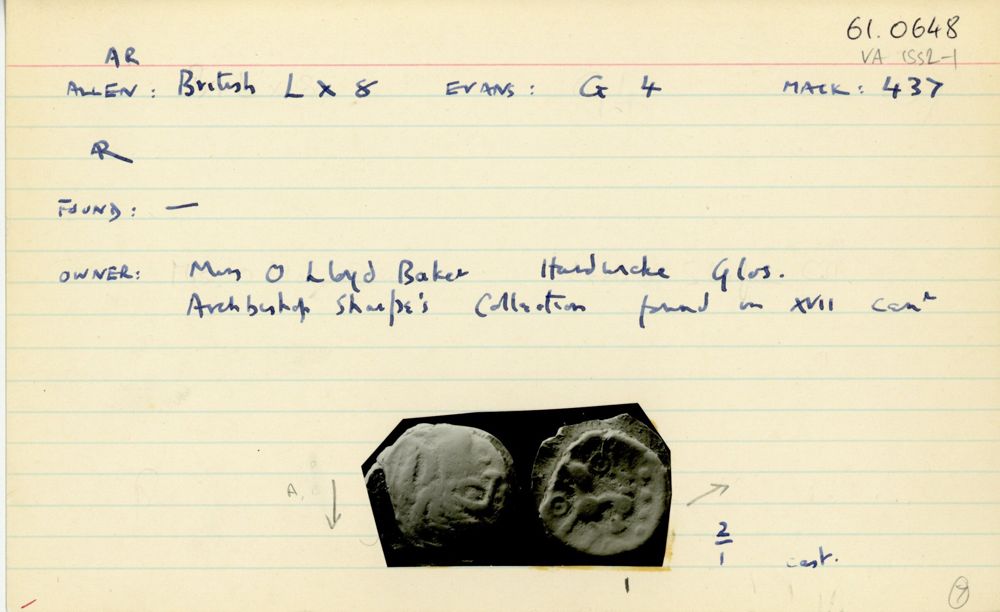 61.0648
AR VA 1552-1
ALLEN: British L X 8 EVANS: G 4 MACK: 437
AR
FOUND: —
OWNER: Miss O Lloyd Baker Hardwicke Glos.
Archbishop Sharpe's Collection found in XVII cen^r
A.
2/1 cast.